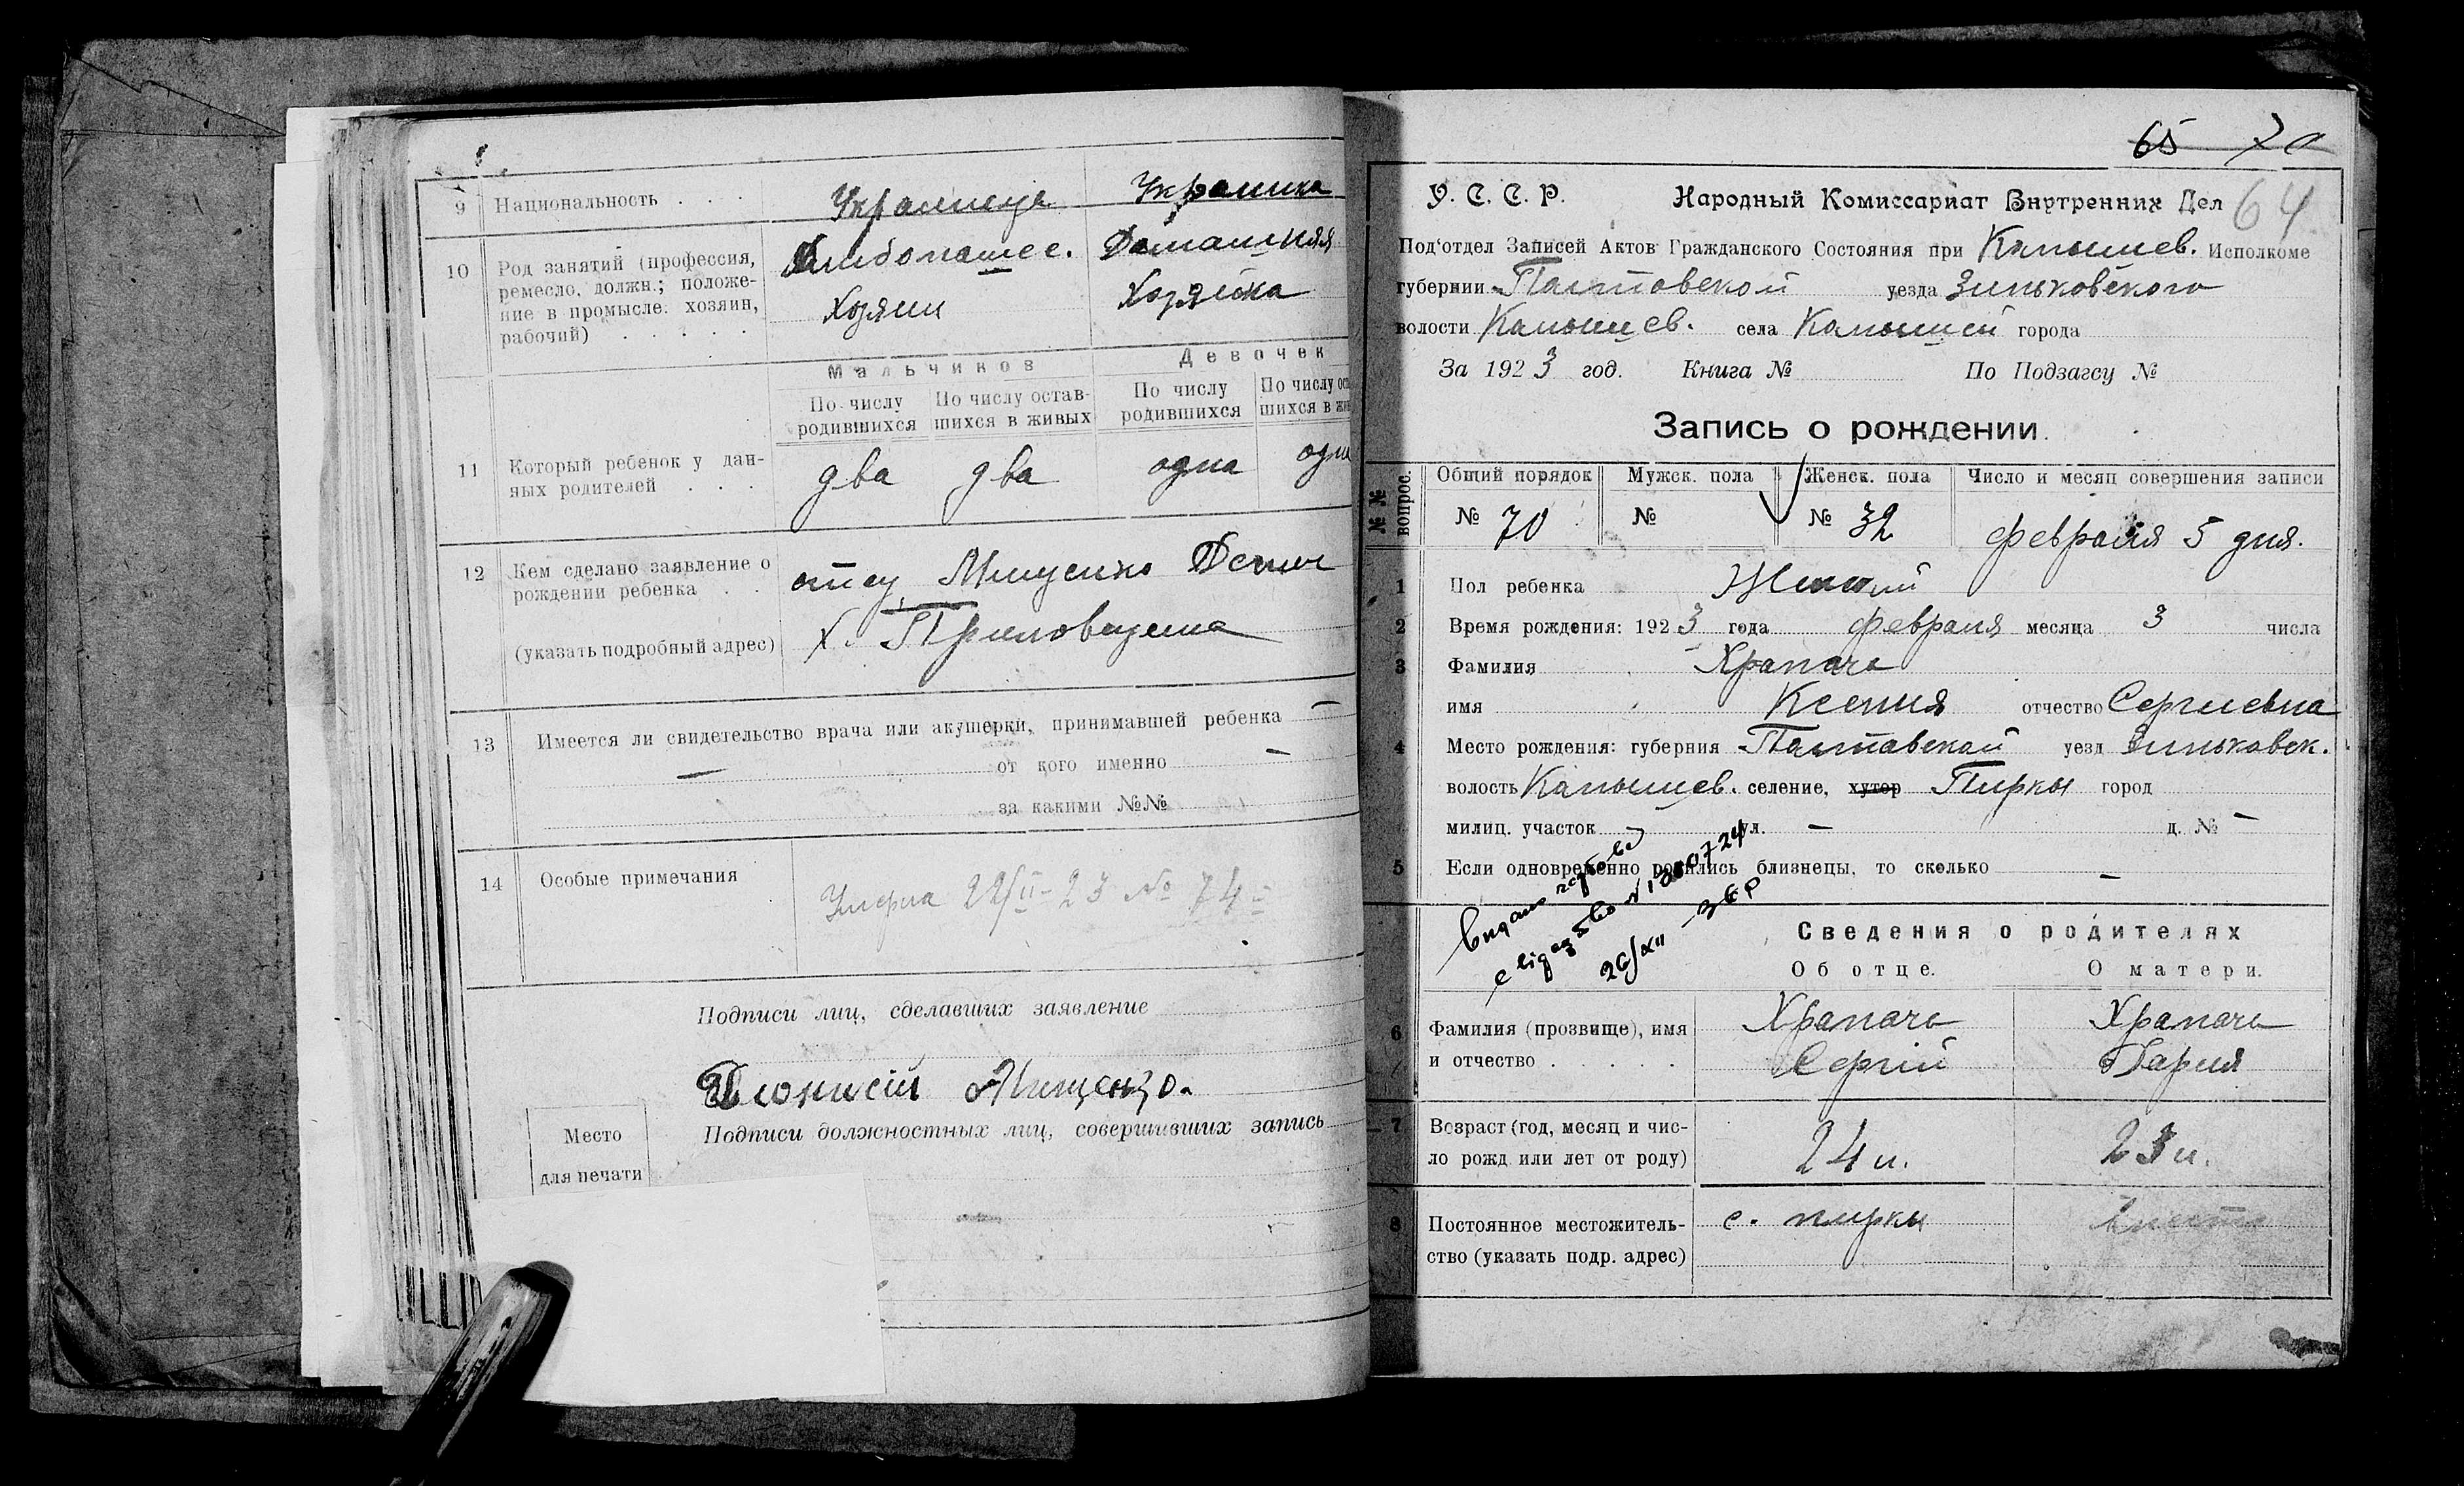 9 Национальность . . . Украинец Украинка
10 Род занятий (профессия, ремесло, должн.; положение в промысле: хозяин, рабочий) . . . .
Хлибопашес. Домашняя
Хозяин Хозяйка
Мальчиков Девочек
По числу родившихся По числу оставшихся в живых По числу родившихся По числу ост шихся в жи
11 Который ребенок у данных родителей . . .
два два одна одна
12 Кем сделано заявление о рождении ребенка . .
отец Мищенко Денис
(указать подробный адрес) х.
13 Имеется ли свидетельство врача или акушерки, принимавшей ребенка —
— от кого именно —
за какими №№
14 Особые примечания
22/II-23 № 74
Подписи лиц, сделавших заявление
Дионисій Мищенко.
Место
для печати
Подписи должностных лиц, совершивших запись
65 70
64
У. С. С. Р. Народный Комиссариат Внутренних Дел
Под'отдел Записей Актов Гражданского Состояния при Капышев. Исполкоме
губернии Палтовской уезда Зиньковского
волости Капышев. села Капышей города
За 1923 год. Книга № По Подзагсу №
Запись о рождении.
№№ вопрос. Общий порядок Мужск. пола Женск. пола Число и месяц совершения записи
№ 70 № № 32 февраля 5 дня.
1 Пол ребенка Женский
2 Время рождения: 1923 года февраля месяца 3 числа
3 Фамилия Храпачь
имя Ксения отчество Сергиевна
4 Место рождения: губерния Палтавской уезд Зиньковск.
волость Капышев. селение, хутор Пирки город
милиц. участок — ул. — д. № —
5 Если одновременно родились близнецы, то сколько —
Видано
26/XII - 36 р
Сведения о родителях
Об отце. О матери.
6 Фамилия (прозвище), имя и отчество . . . . .
Храпачь Храпачь
Сергій Дария
7 Возраст (год, месяц и число рожд. или лет от роду)
24 л. 23 л.
8 Постоянное местожительство (указать подр. адрес)
с. пирки